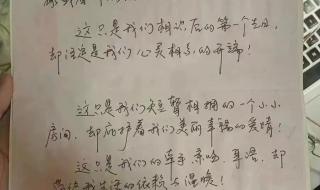 这只是我们相识后的第一个生日,
却注定是我们心灵相系的开端!
这只是我们短暂相拥的一个小小
房间, 却庇护着我们美丽幸福的爱情!
这只是我们的牵手、亲吻、耳语, 却